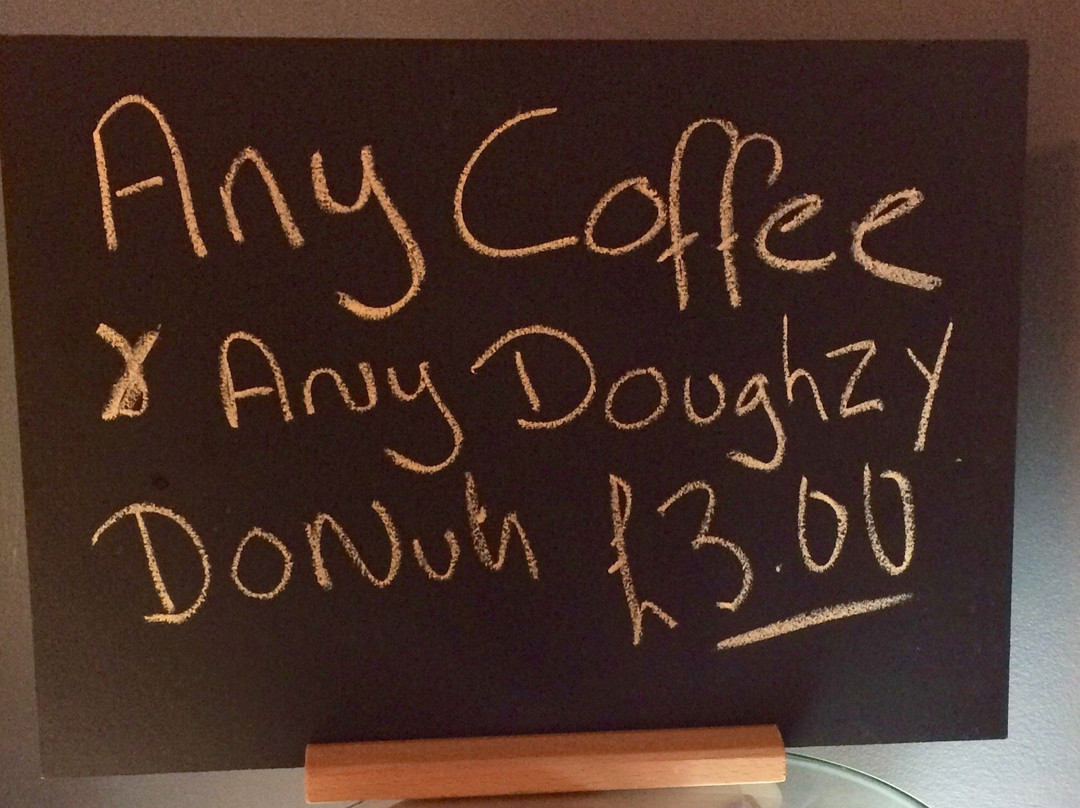 Any Coffee
& Any Doughzy
Donut £3.00